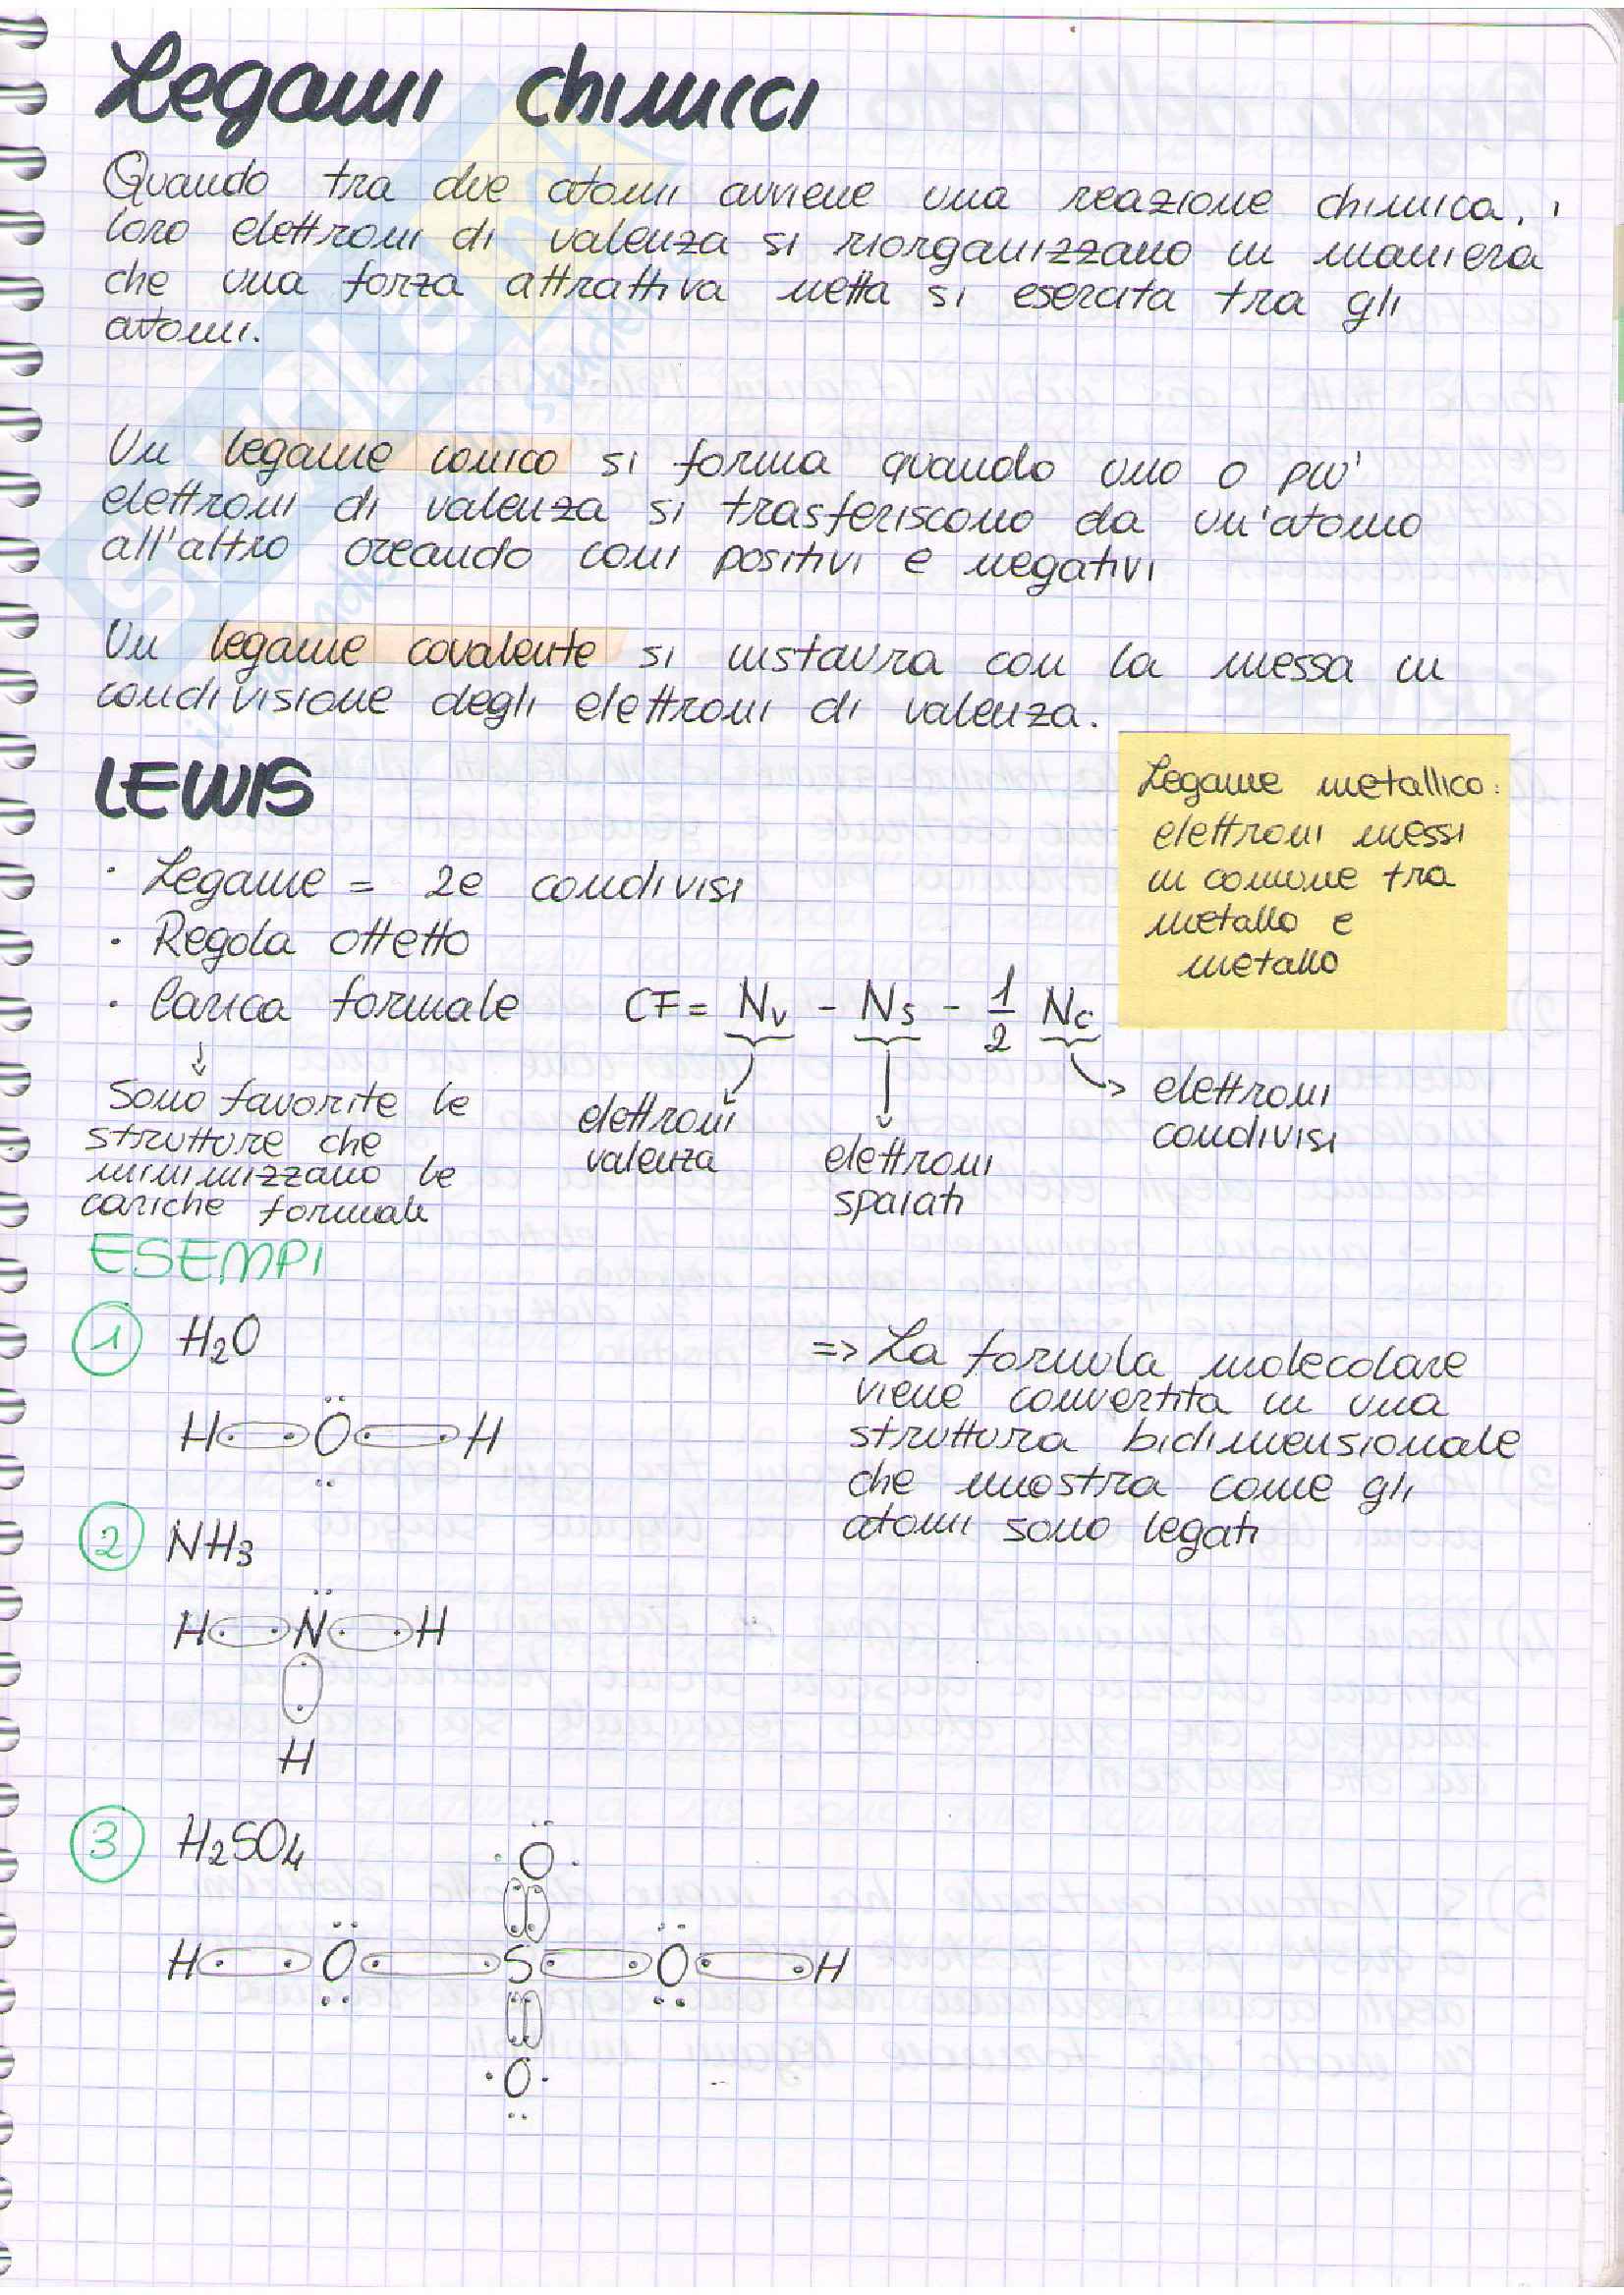 Legami chimici
Quando tra due atomi avviene una reazione chimica, i
loro elettroni di valenza si riorganizzano in maniera
che una forza attrattiva netta si esercita tra gli
atomi.
Un legame ionico si forma quando uno o piu'
elettroni di valenza si trasferiscono da un'atomo
all'altro creando ioni positivi e negativi
Un legame covalente si instaura con la messa in
condivisione degli elettroni di valenza.
LEWIS
Legame metallico:
elettroni messi
in comune tra
metallo e
metallo
· Legame = 2e condivisi
· Regola ottetto
· Carica formale CF = Nv - Ns - 1/2 Nc
↓
Sono favorite le
strutture che
minimizzano le
cariche formali
elettroni
valenza
elettroni
spaiati
elettroni
condivisi
ESEMPI
1 H2O
H O H
=> La formula molecolare
viene convertita in una
struttura bidimensionale
che mostra come gli
atomi sono legati
2 NH3
H N H
H
3 H2SO4
O
H O S O H
O